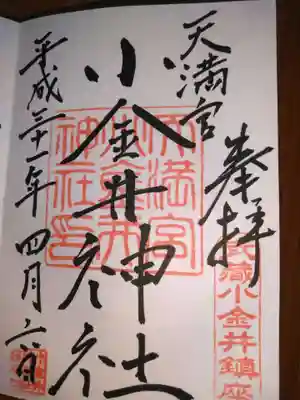 奉拝
武蔵小金井鎮座
天満宮
小金井神社
天満宮
小金井
神社印
平成二十一年四月六日